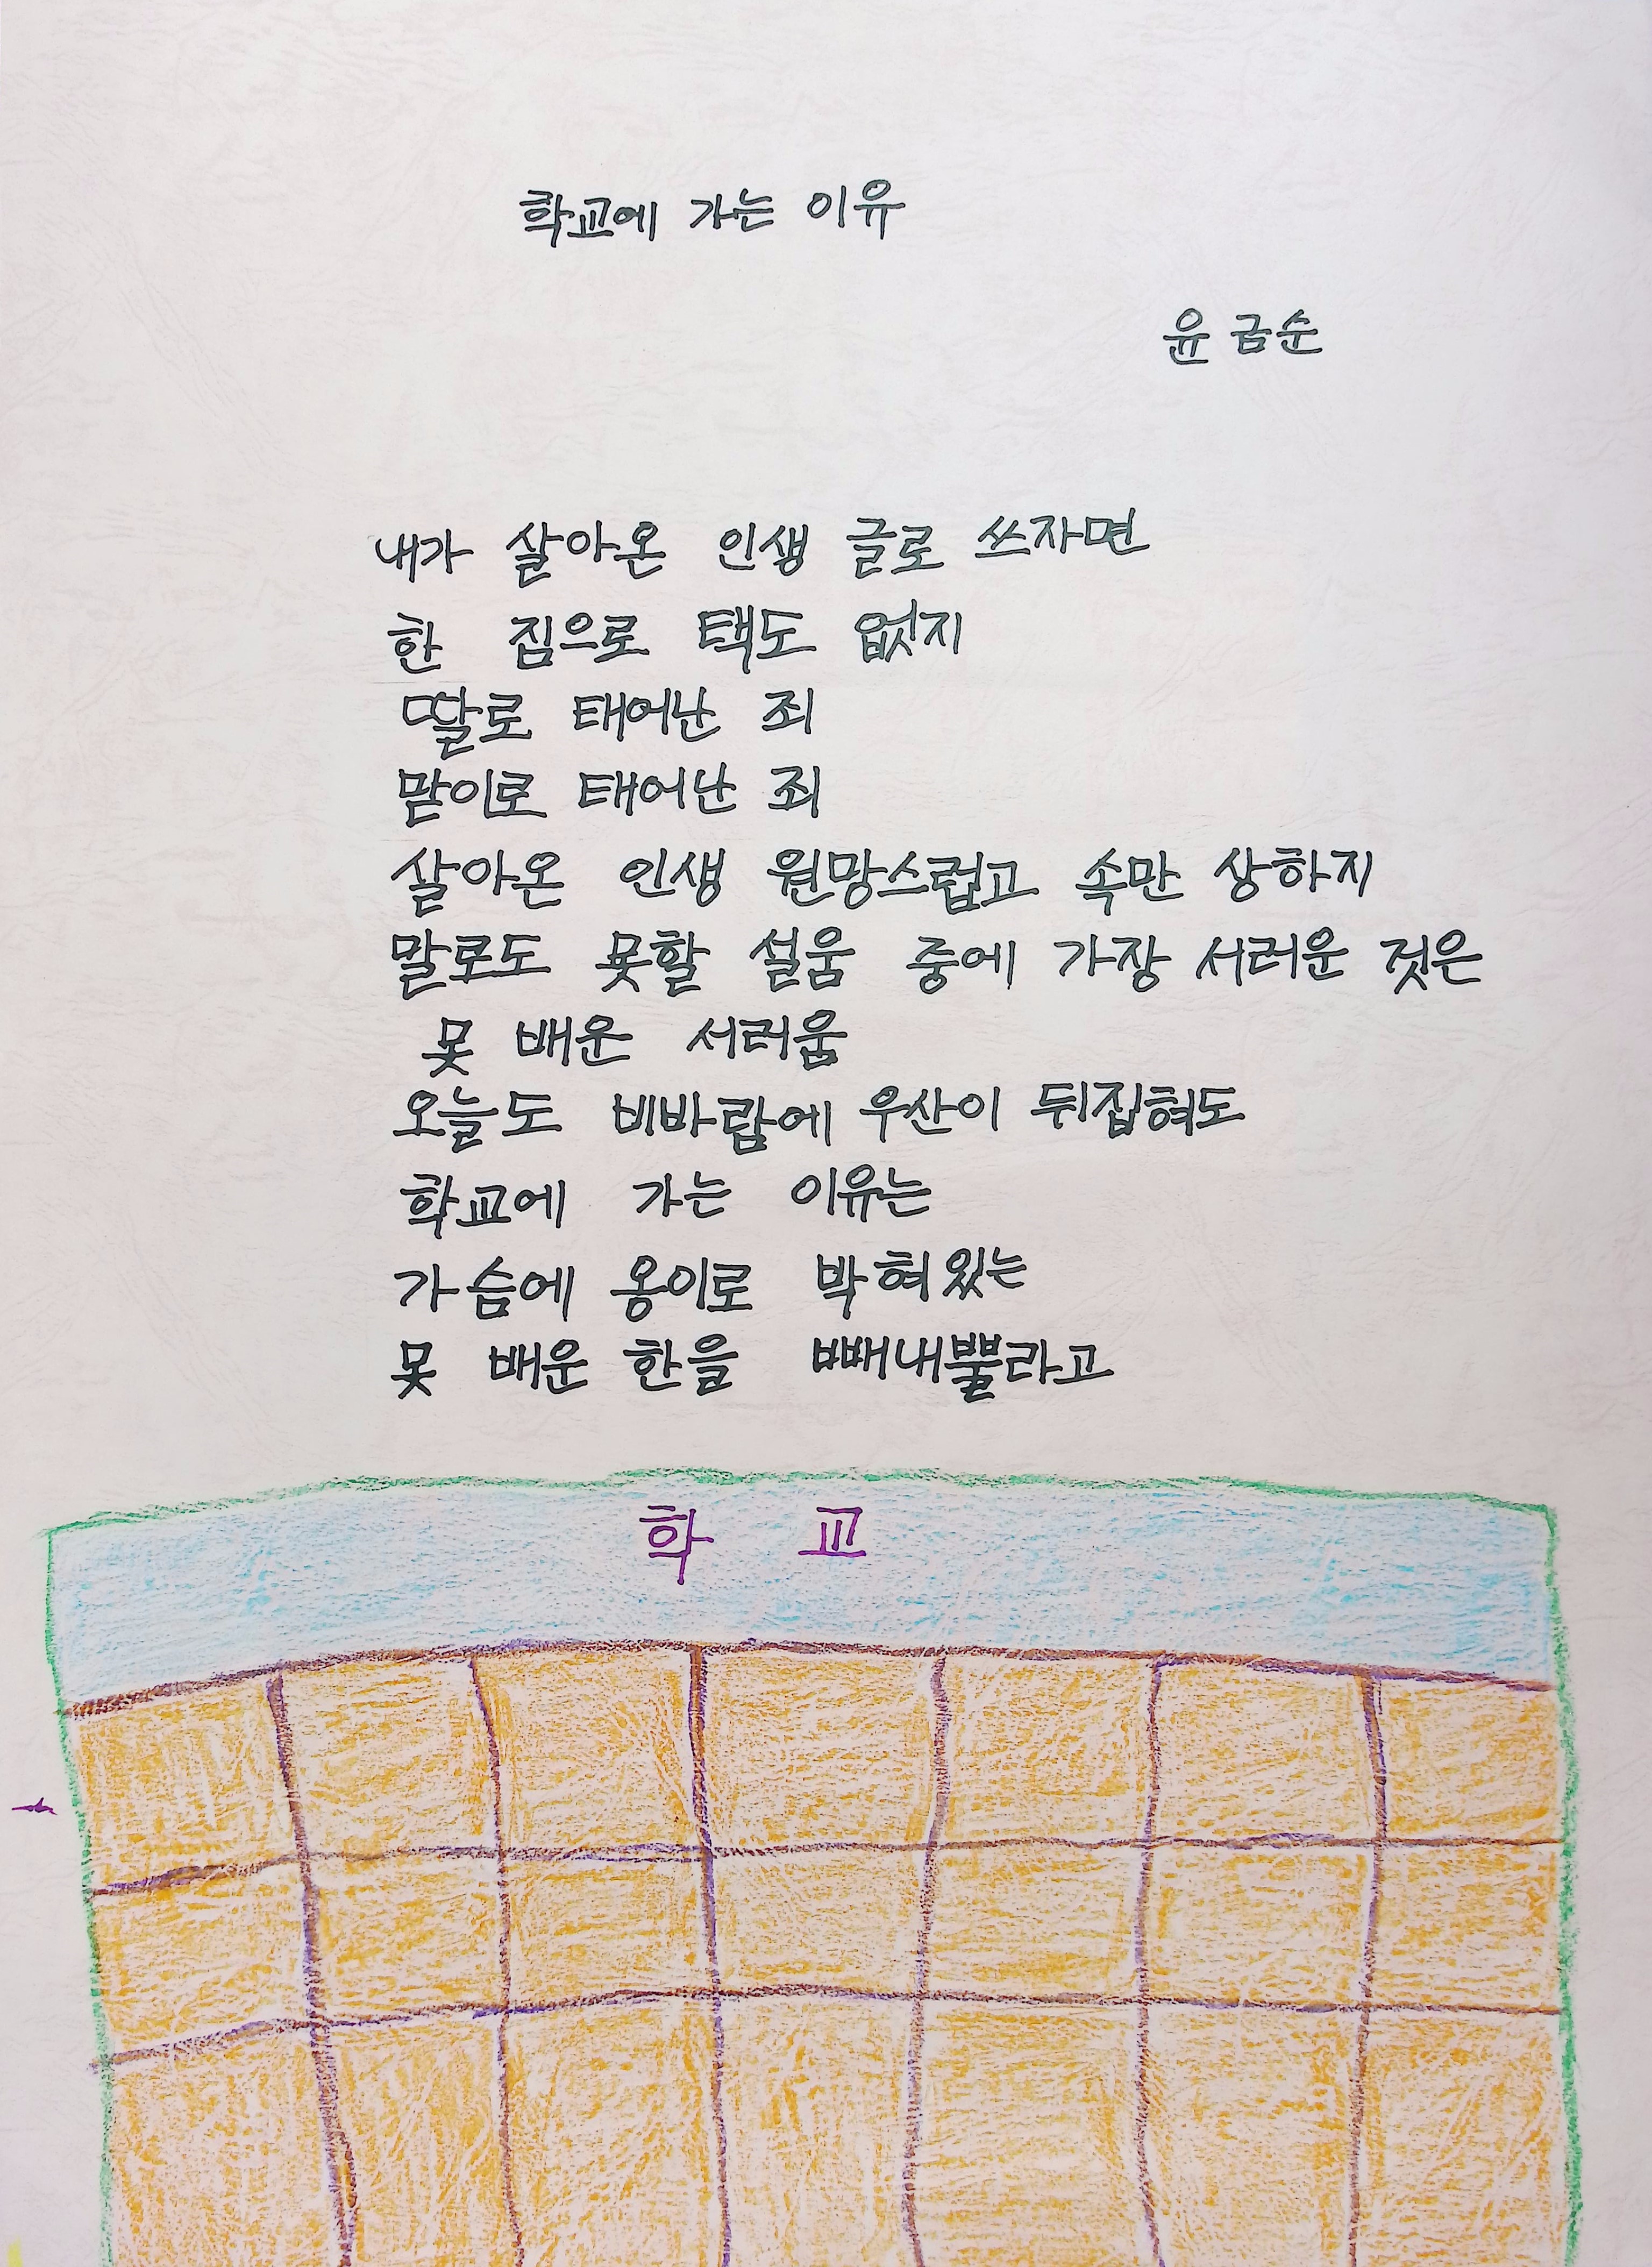 학교에 가는 이유
윤금순
내가 살아온 인생 글로 쓰자면
한 짐으로 택도 없지
딸로 태어난 죄
맏이로 태어난 죄
살아온 인생 원망스럽고 속만 상하지
말로도 못할 설움 중에 가장 서러운 것은
못 배운 서러움
오늘도 비바람에 우산이 뒤집혀도
학교에 가는 이유는
가슴에 옹이로 박혀있는
못 배운 한을 빼내뿔라고
학교